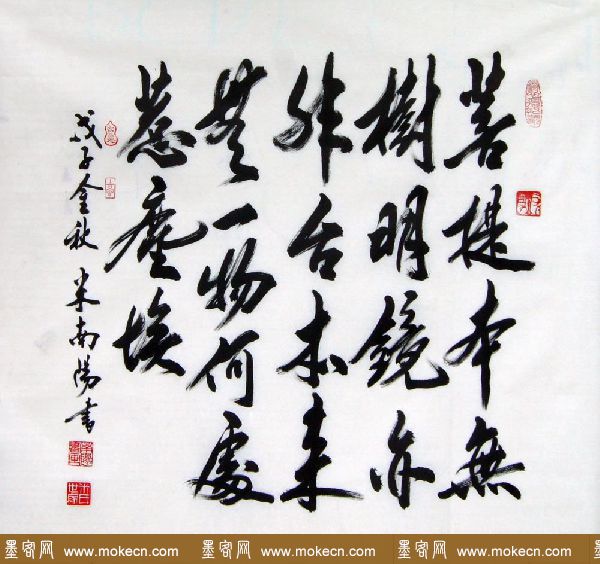 菩提本無
樹明鏡亦
非台本来
無一物何處
惹塵埃
戊子金秋 米南陽書
墨客网 www.mokecn.com 墨客网 www.mokecn.com 墨客网 www.mokecn.com